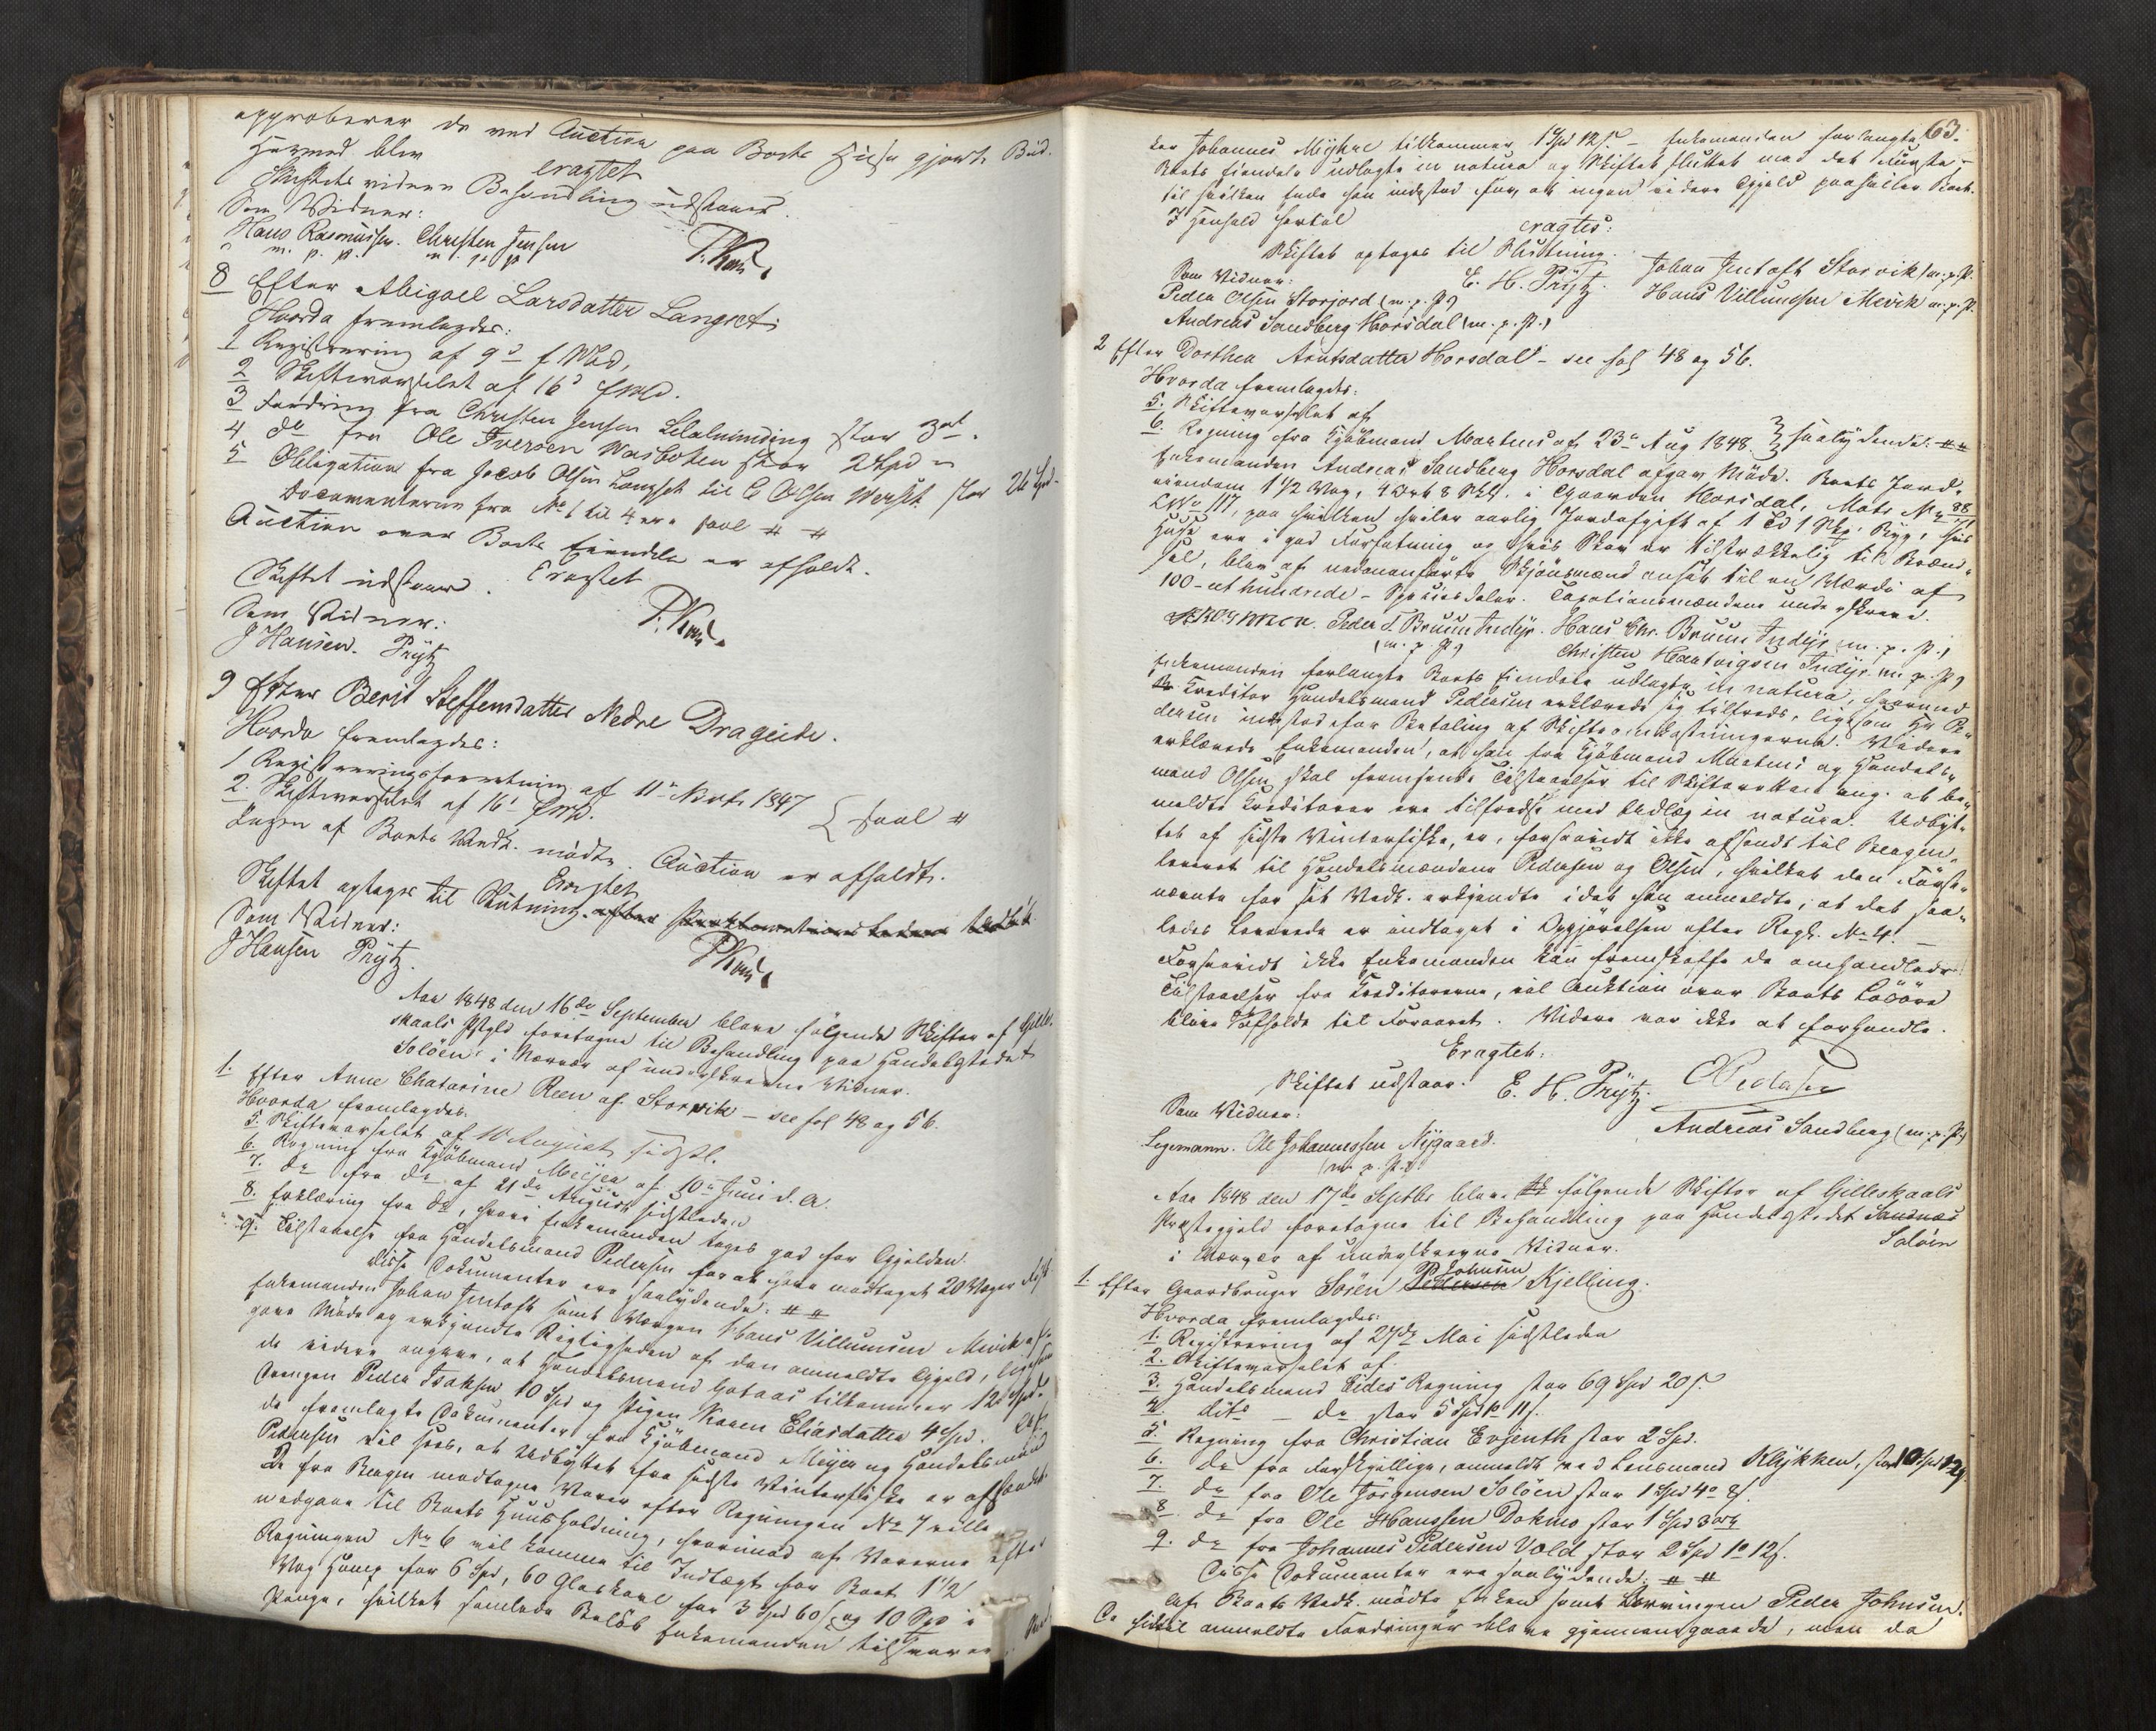 approberer de ved Auction paa Boets Eiendele gjorte Bud.
Hermed blev
eragtet
Skiftets videre Behandling udstaaer.
Som Vidner:
Hans Rasmussen. Christen Jensen
m. p. P. m. p. P.
8 Efter Abigael Larsdatter Langset
Hvorda fremlagdes:
1 Registrering af 9de f. Md,
2 Skiftevarselet af 16de f. Md.
3 Fordring fra Christen Jensen stor
4 do fra Ole Iversen Wasbotten stor 2 Spd
5 Obligation fra Jacob Olsen Langset til C Olsen stor 24 Spd
Documenterne fra No 1 til 4 ere saal # #
Auction over Boets Eiendele er afholdt.
Eragtet
Skiftet udstaaer.
Som Vidner:
J Hansen. Prytz
9 Efter Berit Steffensdatter Nedre Drageide.
Hvorda fremlagdes:
1 Registreringsforretning af 11te 1847
2. Skiftevarselet af 16de f. Md. } saal #
Ingen af Boets Vedk. mødte. Auction er afholdt.
Eragtet
Skiftet optages til Slutning efter
Som Vidner:
J Hansen Prytz.
Aar 1848 den 16de September bleve følgende Skifter af Gilde-
skaals Pstgld foretagne til Behandling paa Handelsstedet
Soløen i Nærvær af underskrevne Vidner.
1. Efter Anne Chatarine Reen af Storvik – see fol 48 og 56.
Hvorda fremlagdes:
5. Skiftevarselet af 10 August sidstl.
6. Regning fra Kjøbmand Meyer af 10de Juni d. A.
7. do fra do af 21de August sidstleden
8. Erklæring fra do, hvori Enkemanden tages god for Gjælden.
9. Tilstaaelse fra Handelsmand Pedersen for at have modtaget 20 Voger
Disse Dokumenter ere saalydende: # #
Enkemanden Johan Jentoft samt Værgen Hans Villumsen Mevik af-
gave Møde og erkjendte Rigtigheden af den anmeldte Gjæld, ligesom
de videre angave, at Handelsmand Gotaas tilkommer 12 Spd.
Drengen Peder Isaksen 10 Spd og Pigen Karen Eliasdatter 4 Spd. Af
de fremlagte Dokumenter fra Kjøbmand Meyer og Handelsmand
Pedersen vil sees, at Udbyttet fra sidste Vinterfiske er afsendt.
De fra Bergen modtagne Varer efter Regningen No 7 ville
medgaae til Boets Huusholdning, hvorimod af Varerne efter
Regningen No 6 vil komme til Indtægt for Boet 1 1/2
Vog Hamp for 6 Spd, 60 Glaskavl for 3 Spd 60 s og 10 Spd i
Penge, hvilket samlede Beløb Enkemanden tilsvarer.
63.
ker Johannes Myhre tilkommer 1 Spd 12 s. – Enkemanden forlangte
Boets Eiendele udlagte in natura og Skiftet sluttet med det første –
til hvilken Ende han indestod for, at ingen videre Gjæld paahviler Boet.
I Henhold hertil
eragtes:
Skiftet optages til Slutning.
Som Vidner: E. H. Prytz. Johan Jentoft Storvik (m. p. P.
Peder Olsen Storjord (m. p. P) Hans Villumsen Mevik m. p. P.
Andreas Sandberg Horsdal (m. p. P.)
2 Efter Dorthea Arntsdatter Horsdal – see fol 48 og 56.
Hvorda fremlagdes:
5. Skiftevarselet af
6. Regning fra Kjøbmand Martens af 23de Aug 1848. } saalydende: # #
Enkemanden Andreas Sandberg Horsdal afgav Møde. Boets Jord-
eiendom 1 1/2 Vog, 4 Ort 8 Skl. i Gaarden Horsdal, Matr. No 88
LNo 117, paa hvilken hviler aarlig Jordafgift af 1 Td 1 Skp Byg, hvis
Huse ere i god Forfatning og hvis Skov er tilstrækkelig til Brænd-
sel, blev af nedenanførte Skjønsmænd ansat til en Værdi af
100 – et hundrede – Speciesdaler. Taxationsmændene underskreve.
Peder I Bruun Indyr. Hans Chr. Bruun Indyr (m. p. P.)
(m. p. P) Christen Hartvigsen Indyr m. p. P)
Enkemanden forlangte Boets Eiendele udlagte in natura, hvormed
Creditor Handelsmand Pedersen erklærede sig tilfreds, ligesom Hr Pe-
dersen indestod for Betaling af Skifteomkostningerne. Videre
erklærede Enkemanden, at han fra Kjøbmand Martens og Handels-
mand Olsen skal fremsende Tilstaaelser til Skifteretten ang. at be-
meldte Creditorer ere tilfredse med Udlæg in natura. Udbyt-
tet af sidste Vinterfiske, er, forsaavidt ikke afsendt til Bergen,
leveret til Handelsmændene Pedersen og Olsen, hvilket den Først-
nævnte for sit Vedk. erkjendte idet han anmeldte, at det saa-
ledes Leverede er indtaget i Opgjørelsen efter Regk. No 4. –
Forsaavidt ikke Enkemanden kan fremskaffe de omhandlede
Tilstaaelser fra Creditorerne, vil Auktion over Boets Løsøre
blive afholdt til Foraaret. Videre var ikke at forhandle.
Eragtet:
Skiftet udstaar. E. H. Prytz. Pedersen
Som Vidner: Andreas Sandberg (m. p. P.)
Legemann. Ole Johannessen Nygaard.
(m. p. P.)
Aar 1848 den 17de Septbr bleve følgende Skifter af Gilleskaals
Præstegjeld foretagne til Behandling paa Handelsstedet Sandnæs
Soløen
i Nærvær af underskrevne Vidner.
1. Efter Gaardbruger Søren Pedersen Johnsen Kjelling.
Hvorda fremlagdes:
1. Registrering af 27de Mai sidstleden
2. Skiftevarselet af
3. Handelsmand Eides Regning stor 69 Spd 20 s.
4. dito – do stor 5 Spd 1o 11 s.
5. Regning fra Christian Evjenth stor 2 Spd.
6. do fra Forskjellige, anmeldt ved Lensmand Klykken, stor 10 Spd
7. do fra Ole Jørgensen Soløen stor 1 Spd 4o 8 s.
8. do fra Ole Hanssen Dokmo stor 1 Spd 3 ort
9. do fra Johannes Pedersen Vold stor 2 Spd 1o 12 s.
Disse Dokumenter ere saalydende: # #
Af Boets Vedk. mødte Enken samt Lavværgen Peder Johnsen.
De hidtil anmeldte Fordringer bleve gjennemgaaede, men da